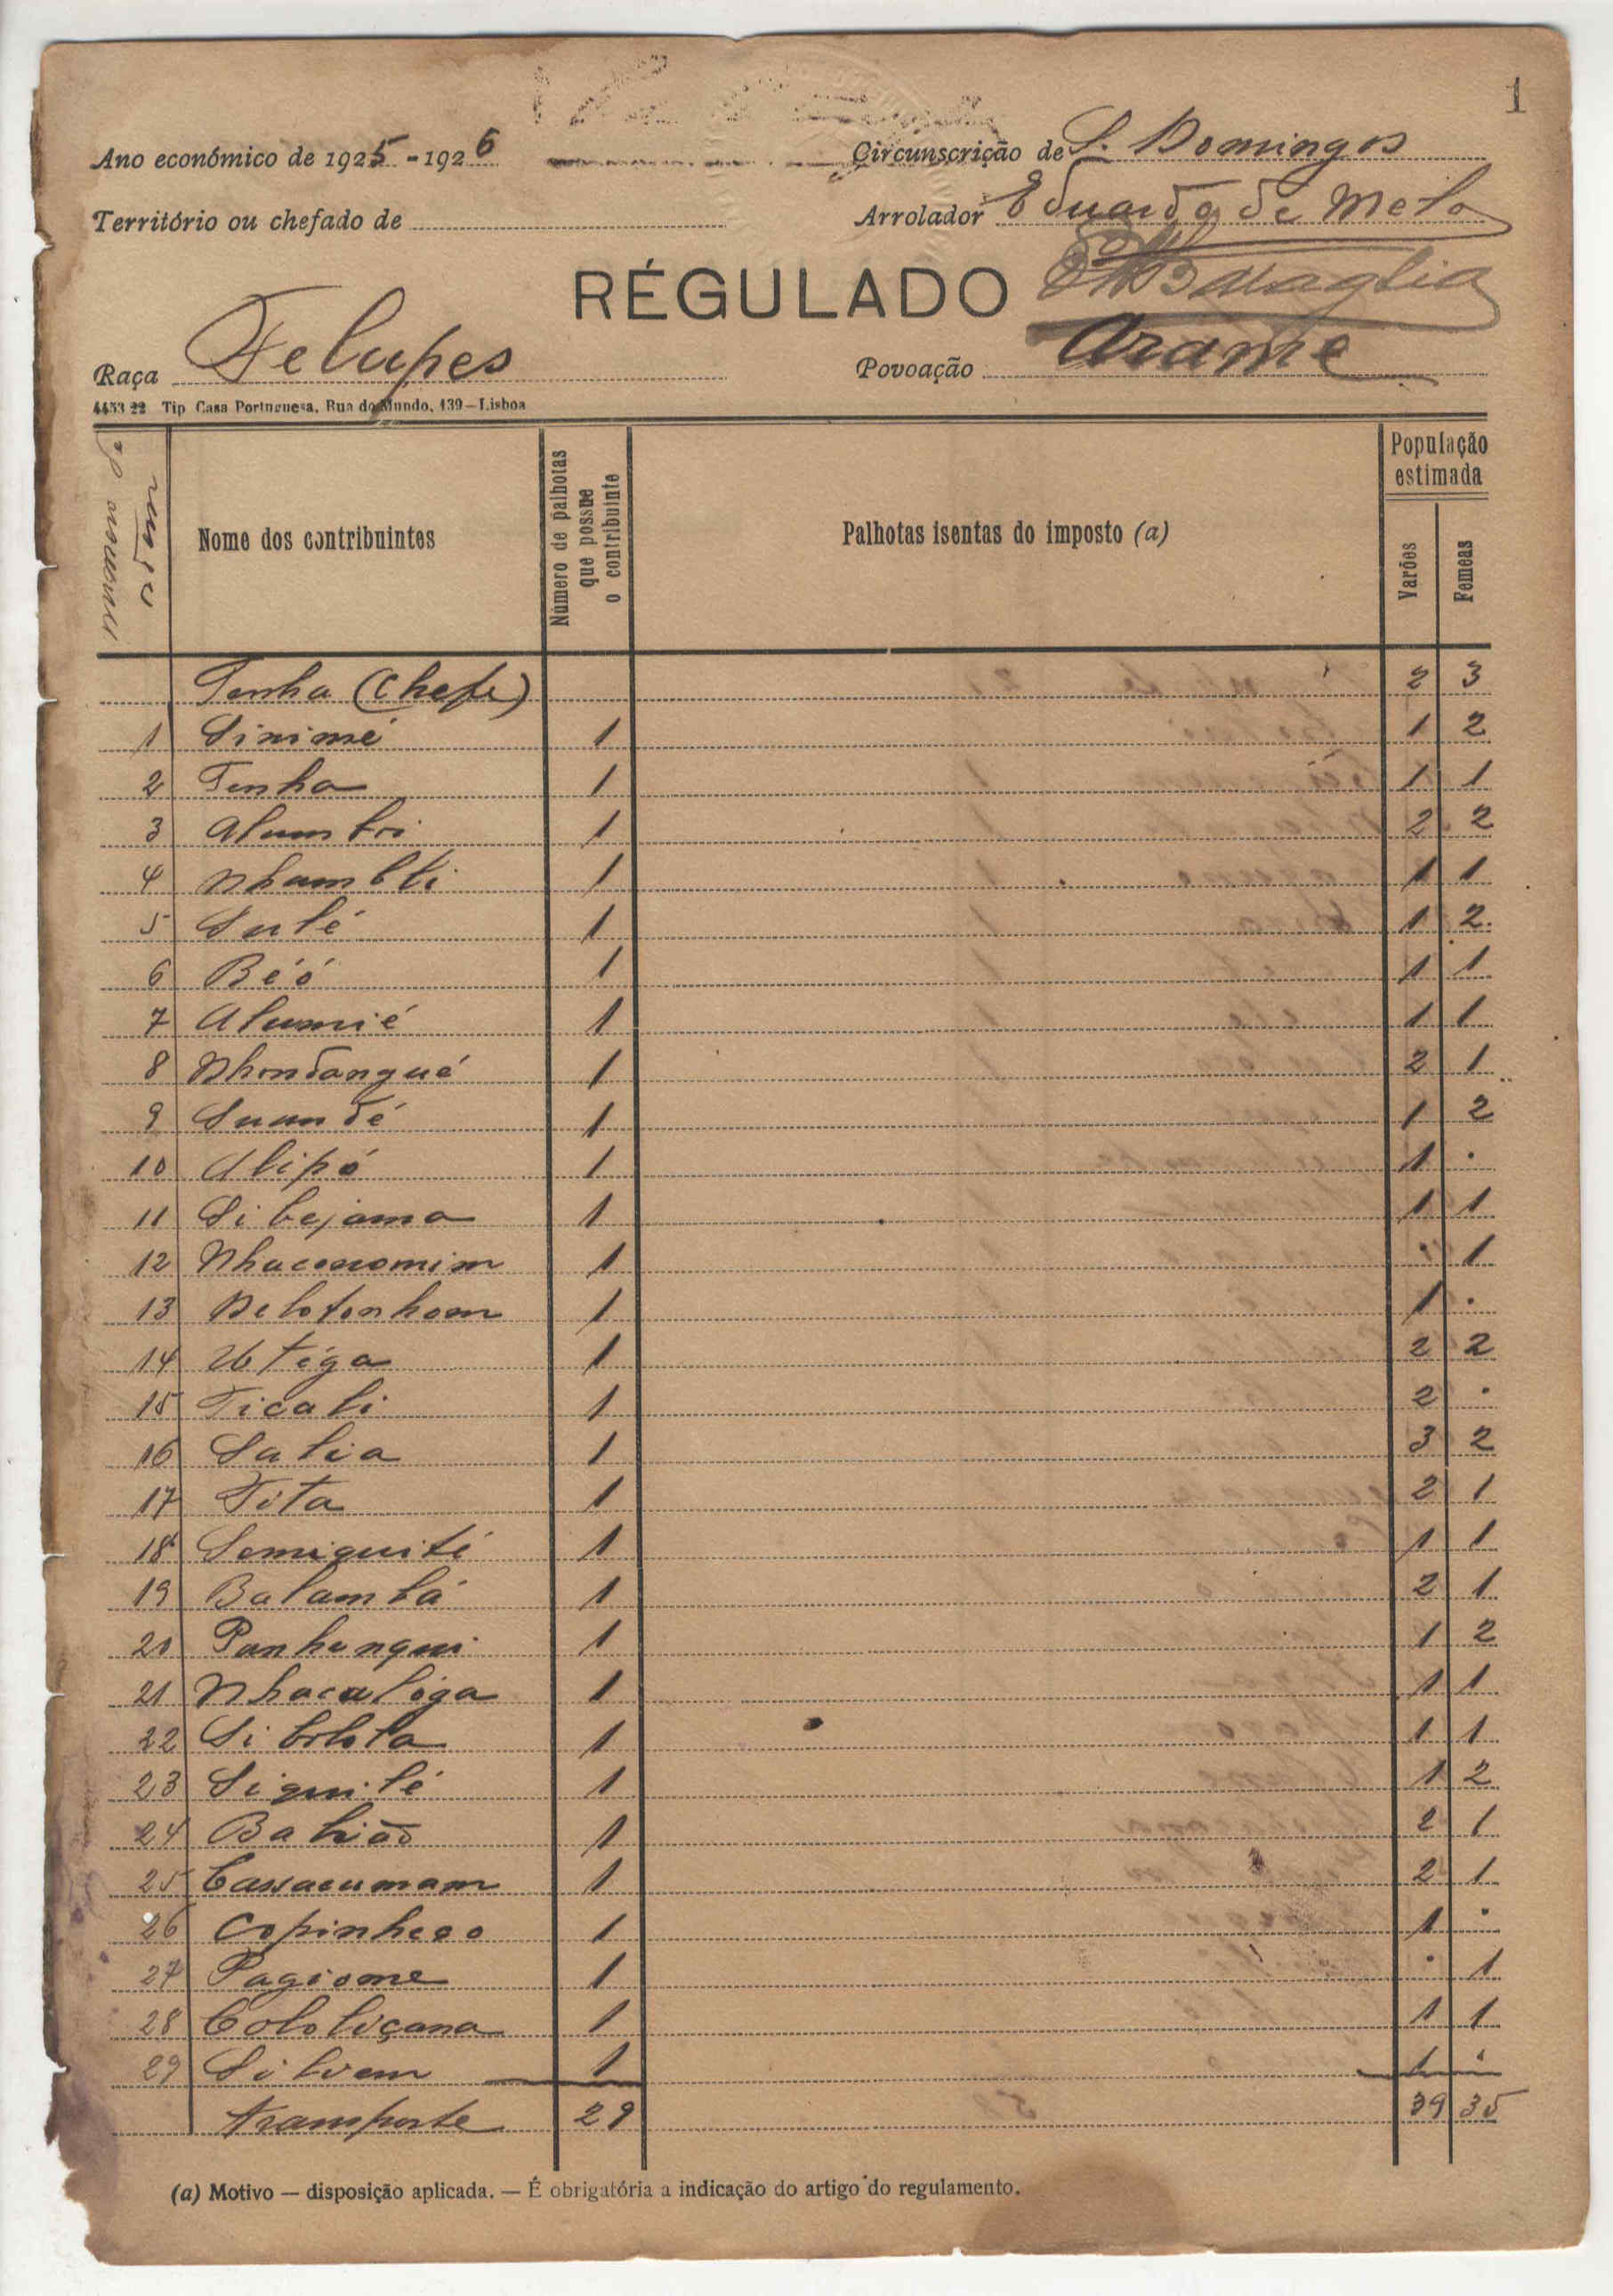 1
Ano económico de 1925-1926 Circunscrição de S. Domingos
Território ou chefado de Arrolador Eduardo de Melo
RÉGULADO
Raça Felupes Povoação Arame
4453 22 Tip Casa Portuguesa, Rua do Mundo, 139—Lisboa
numero de
Nome dos contribuintes
Número de palhotas que possue o contribuinte
Palhotas isentas do imposto (a)
População estimada
Varões Femeas
Tenha (Chefe) 2 3
1 Sinimé 1 1 2
2 Tenha 1 1 1
3 1 2 2
4 1 1 1
5 Sulé 1 1 2
6 Béó 1 1 1
7 Alumié 1 1 1
8 Nhondangué 1 2 1
9 Suandé 1 1 2
10 Alipó 1 1 .
11 Sibejama 1 1 1
12 Nhaconomim 1 . 1
13 1 1 .
14 1 2 2
15 Ticali 1 2 .
16 Salia 1 3 2
17 Tita 1 2 1
18 Semiquité 1 1 1
19 1 2 1
20 Panhunqui 1 1 2
21 1 1 1
22 1 1 1
23 Siquilé 1 1 2
24 1 2 1
25 Cassacumam 1 2 1
26 Copinheso 1 1 .
27 Pagiome 1 . 1
28 Cololiçana 1 1 1
29 1 1 .
transporte 29 39 35
(a) Motivo — disposição aplicada. — É obrigatória a indicação do artigo do regulamento.